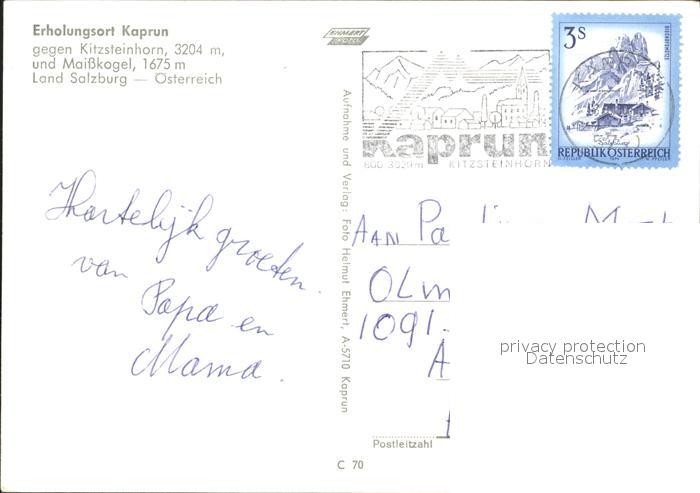 Erholungsort Kaprun
gegen Kitzsteinhorn, 3204 m,
und Maißkogel, 1675 m
Land Salzburg — Österreich
EHMERT
Hartelijk groeten
van
Papa en
Mama.
Aufnahme und Verlag: Foto Helmut Ehmert, A-5710 Kaprun
C 70
Kaprun
800-3029m KITZSTEINHORN
3S
BISCHOFSMÜTZE
Salzburg
REPUBLIK ÖSTERREICH
AAN Pa
OLm
1091
A
privacy protection
Datenschutz
Postleitzahl